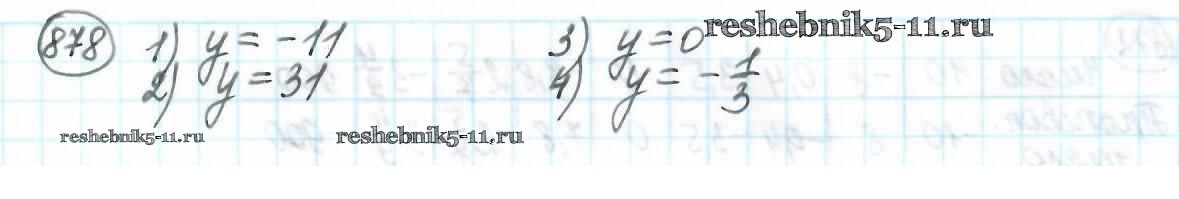 878 1) y = -11 3) y = 0 reshebnik5-11.ru
2) y = 31 4) y = -1/3
reshebnik5-11.ru reshebnik5-11.ru